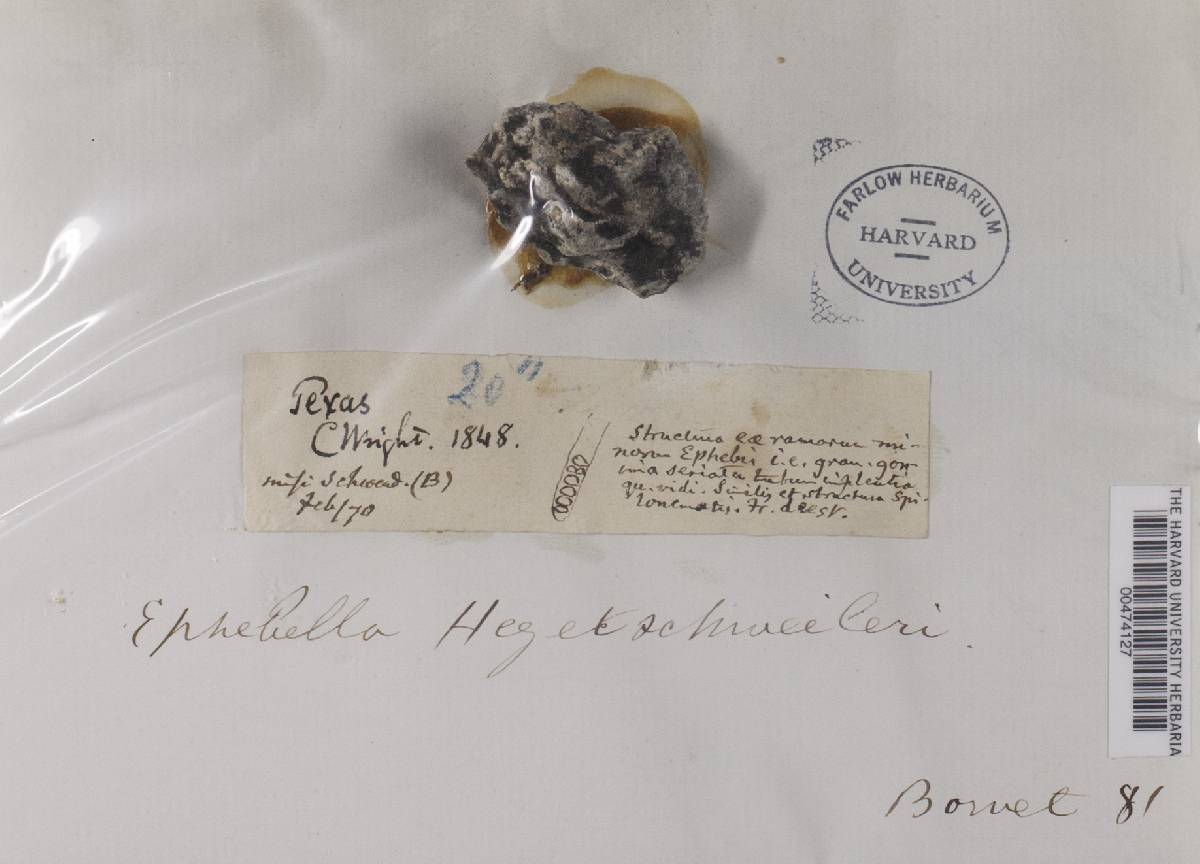 FARLOW HERBARIUM
HARVARD
UNIVERSITY
20"
Texas
C Wright. 1848.
misi Schwend. (B)
Feb/70
Structura eae ramorum mi-
norum Ephebis i.e. gran. gon-
imia seriata tubum implentia
qu. vidi. Similis et structura Spi-
lonematis. Fr. deest.
Ephebella Hegetschweileri.
THE HARVARD UNIVERSITY HERBARIA
00474127
Bornet 81